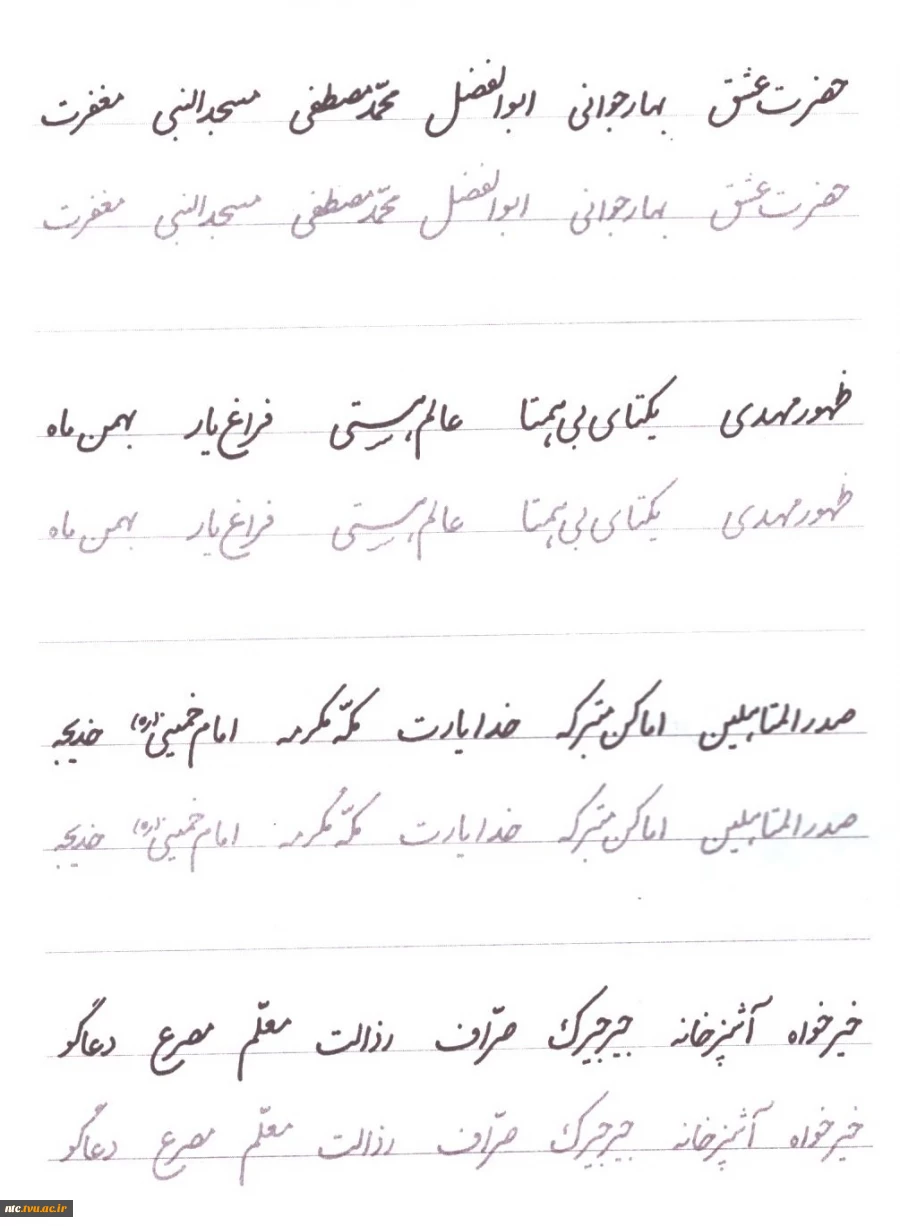 حضرت عشق بهار جوانی ابوالفضل محمّد مصطفی مسجد النبی مغفرت
حضرت عشق بهار جوانی ابوالفضل محمّد مصطفی مسجد النبی مغفرت
ظهور مهدی یکتای بی همتا عالم هستی فراغ یار بهمن ماه
ظهور مهدی یکتای بی همتا عالم هستی فراغ یار بهمن ماه
صدر المتاهلین اماکن متبرکه خدا یارت مکّه مکرمه امام خمینی (ره) خدیجه
صدر المتاهلین اماکن متبرکه خدا یارت مکّه مکرمه امام خمینی (ره) خدیجه
خیرخواه آشپزخانه جیرجیرک صرّاف رذالت معلّم مصرع دعاگو
خیرخواه آشپزخانه جیرجیرک صرّاف رذالت معلّم مصرع دعاگو
ntc.tvu.ac.ir